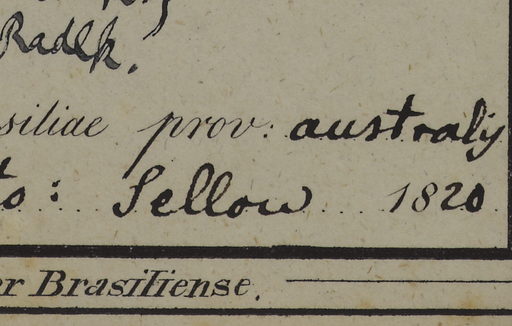 Radlk.
siliae prov: australis
to: Sellow 1820
er Brasiliense.